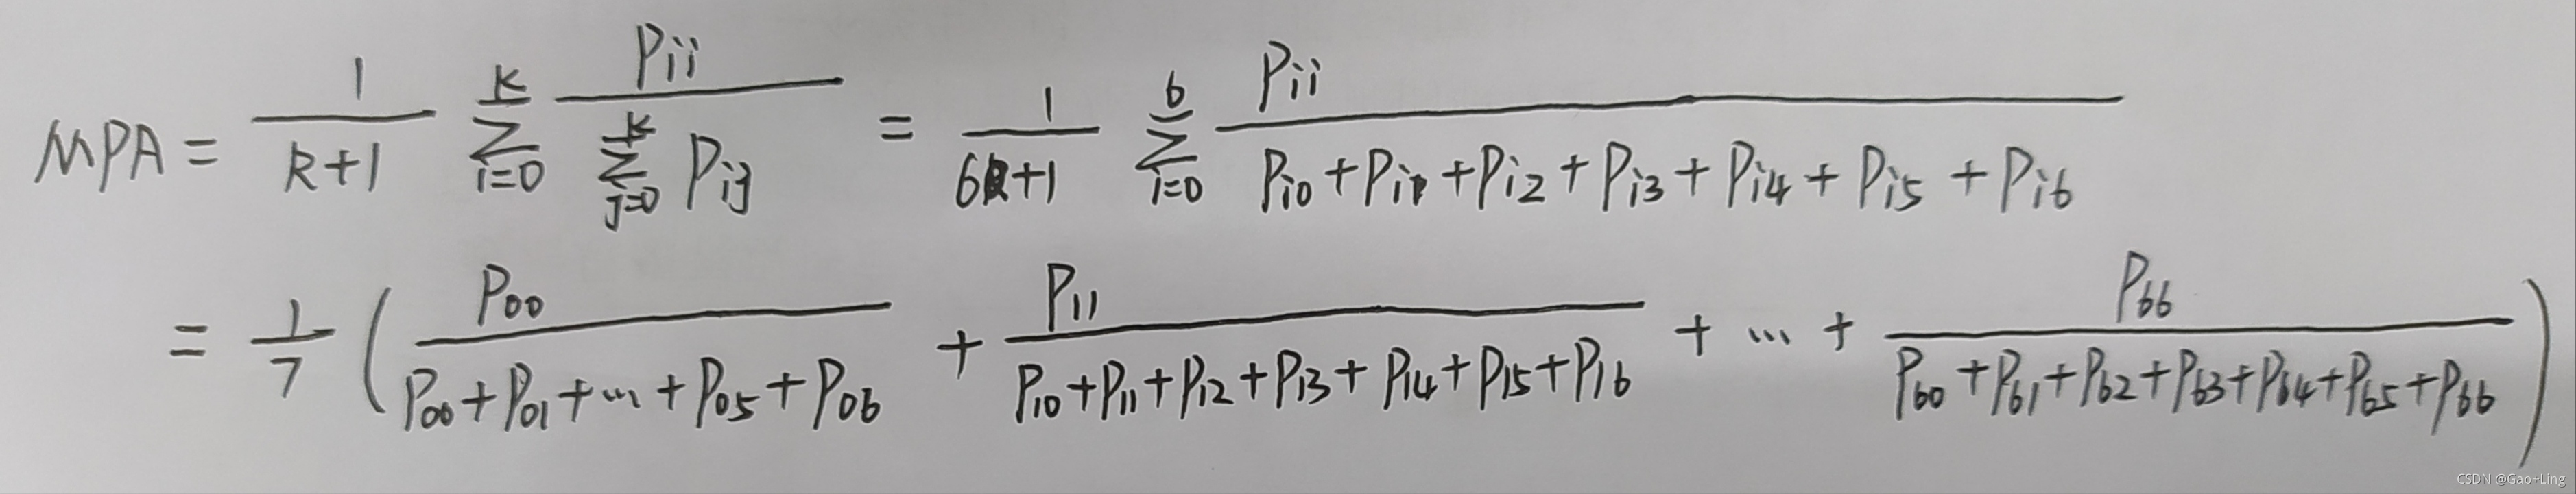 MPA = \frac{1}{k+1} \sum_{i=0}^{k} \frac{P_{ii}}{\sum_{j=0}^{k} P_{ij}} = \frac{1}{6+1} \sum_{i=0}^{6} \frac{P_{ii}}{P_{i0}+P_{i1}+P_{i2}+P_{i3}+P_{i4}+P_{i5}+P_{i6}}
= \frac{1}{7} ( \frac{P_{00}}{P_{00}+P_{01}+\dots+P_{05}+P_{06}} + \frac{P_{11}}{P_{10}+P_{11}+P_{12}+P_{13}+P_{14}+P_{15}+P_{16}} + \dots + \frac{P_{66}}{P_{60}+P_{61}+P_{62}+P_{63}+P_{64}+P_{65}+P_{66}} )
CSDN @Gao+Ling